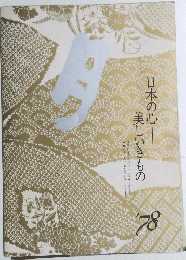 月
日本の心—
美しいきもの
'78